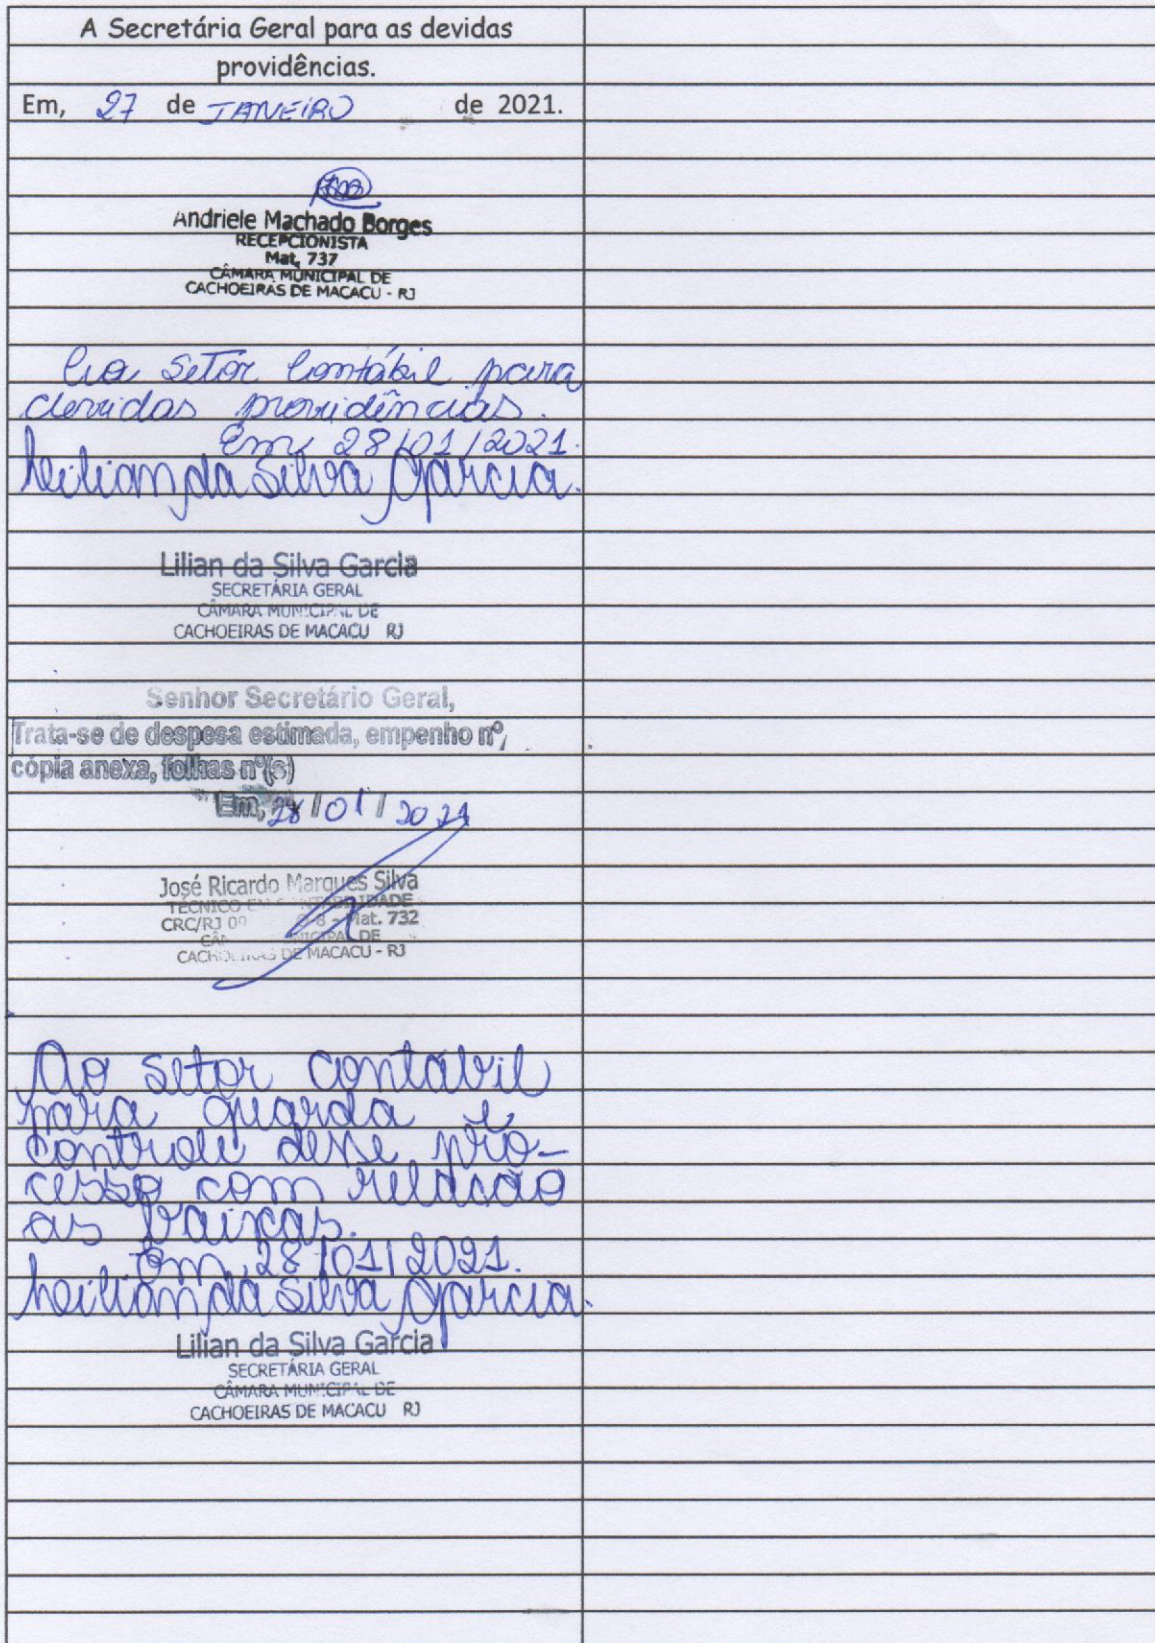 A Secretária Geral para as devidas
providências.
Em, 27 de JANEIRO de 2021.
Andriele Machado Borges
RECEPCIONISTA
Mat. 737
CÂMARA MUNICIPAL DE
CACHOEIRAS DE MACACU - RJ
Ao Setor Contábil para
devidas providências.
Em, 28/01/2021.
Lilian da Silva Garcia.
Lilian da Silva Garcia
SECRETÁRIA GERAL
CÂMARA MUNICIPAL DE
CACHOEIRAS DE MACACU RJ
Senhor Secretário Geral,
Trata-se de despesa estimada, empenho nº,
cópia anexa, folhas nº(s)
Em, 28 / 01 / 2021
José Ricardo Marques Silva
TÉCNICO EM CONTABILIDADE
CRC/RJ - Mat. 732
CÂMARA MUNICIPAL DE
CACHOEIRAS DE MACACU - RJ
Ao setor contábil
para guarda e
controle desse pro-
cesso com relação
as baixas.
Em, 28/01/2021.
Lilian da Silva Garcia.
Lilian da Silva Garcia
SECRETÁRIA GERAL
CÂMARA MUNICIPAL DE
CACHOEIRAS DE MACACU RJ